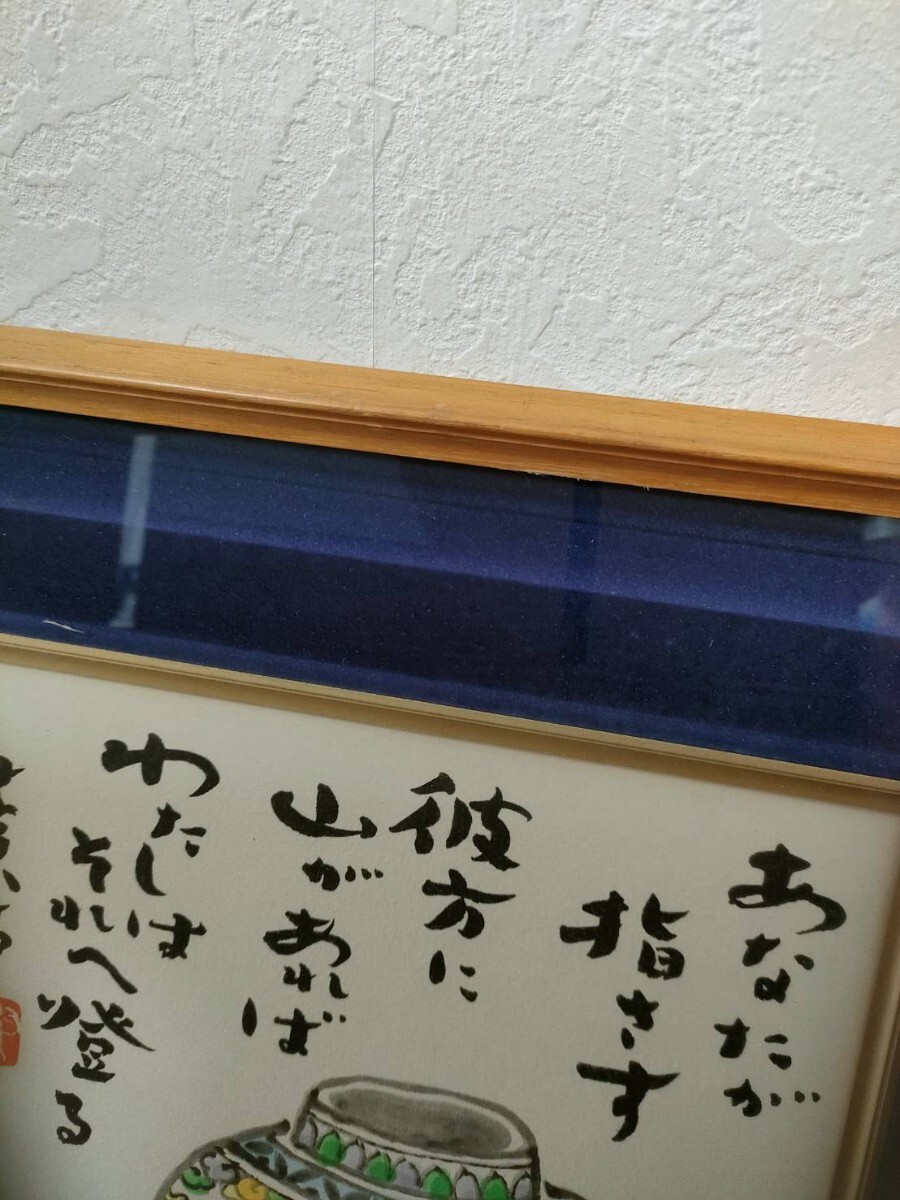 あなたが
指さす
彼方に
山があれば
わたしは
それへ登る